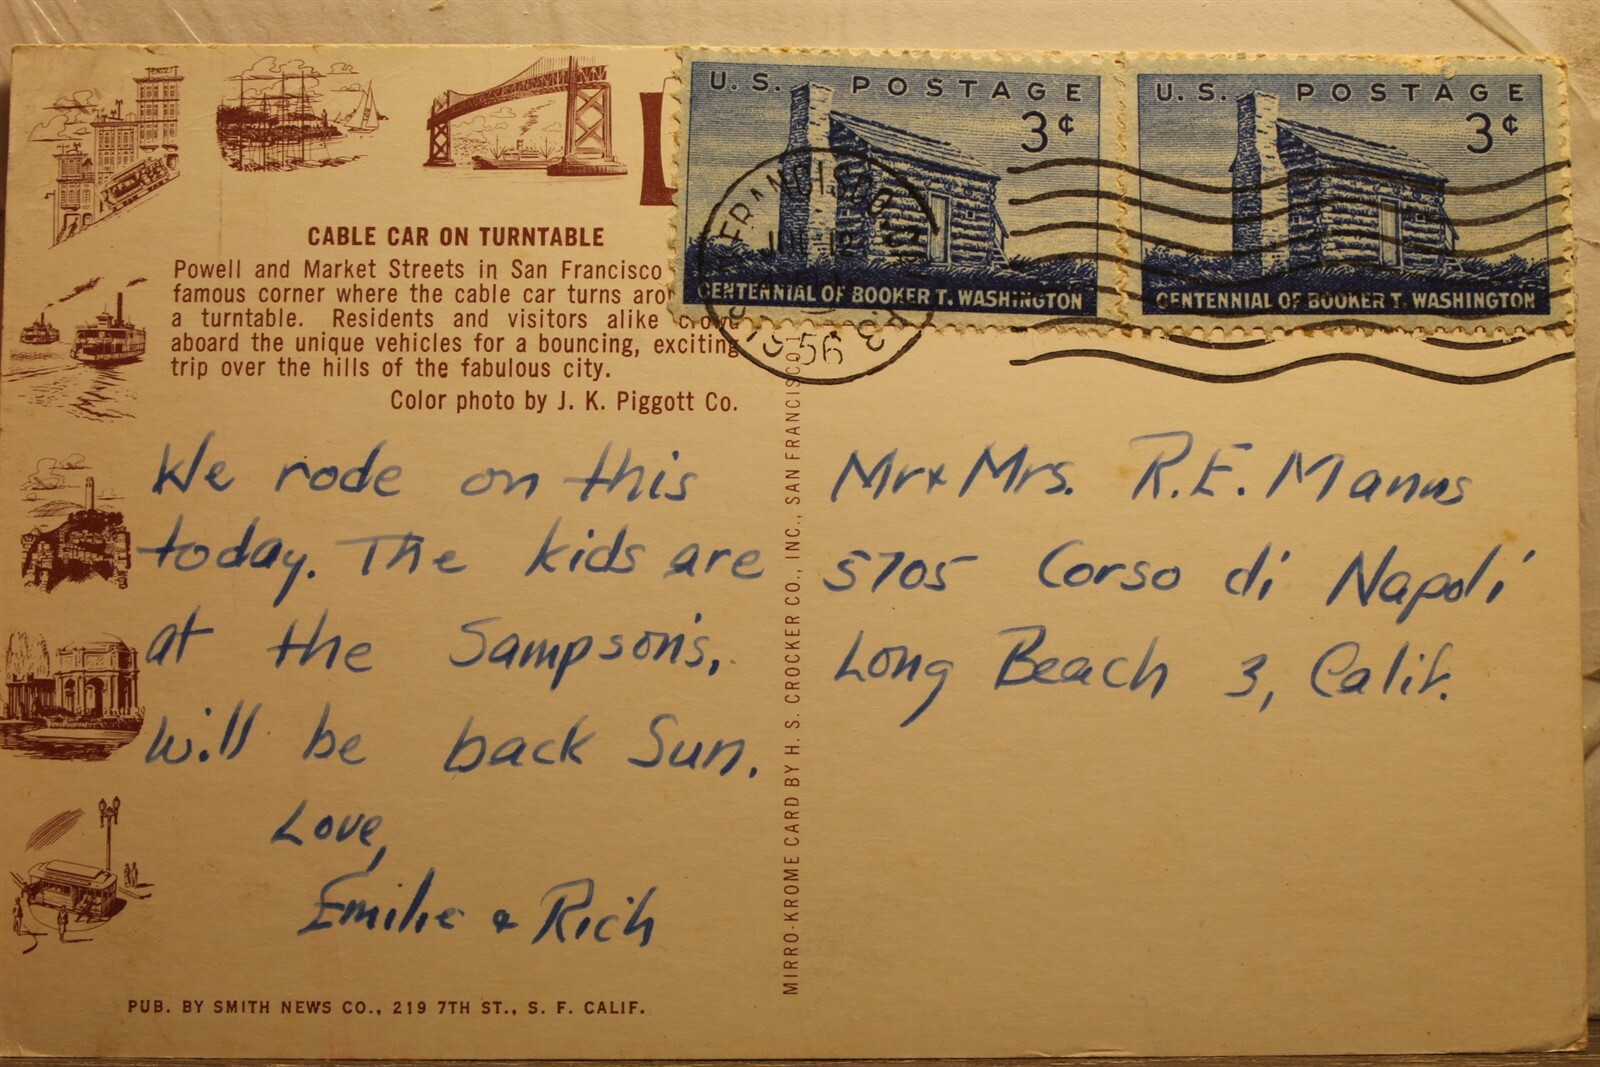 CABLE CAR ON TURNTABLE
Powell and Market Streets in San Francisco
famous corner where the cable car turns
a turntable. Residents and visitors alike crowd
aboard the unique vehicles for a bouncing, exciting
trip over the hills of the fabulous city.
Color photo by J. K. Piggott Co.
We rode on this
today. The kids are
at the Sampson's,
will be back Sun.
Love,
Emilie & Rich
PUB. BY SMITH NEWS CO., 219 7TH ST., S. F. CALIF.
MIRRO-KROME CARD BY H. S. CROCKER CO., INC., SAN FRANCISCO
U.S. POSTAGE
3¢
CENTENNIAL OF BOOKER T. WASHINGTON
U.S. POSTAGE
3¢
CENTENNIAL OF BOOKER T. WASHINGTON
FRANCISCO
56
Mr & Mrs. R.E. Manns
5705 Corso di Napoli
Long Beach 3, Calif.